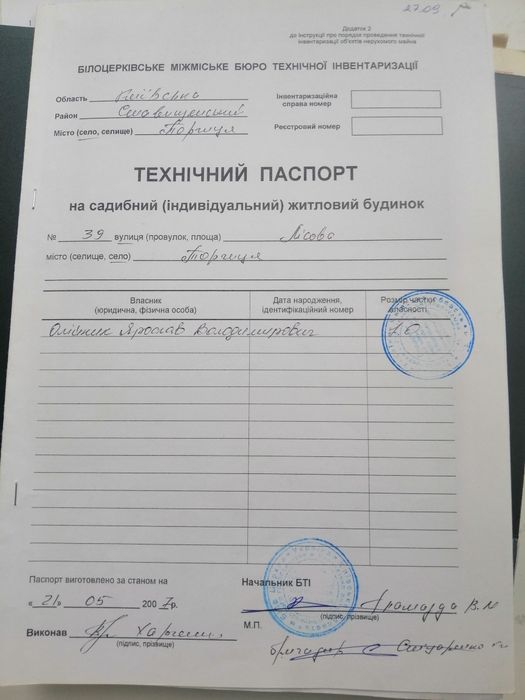 27.09
Додаток 2
до Інструкції про порядок проведення технічної
інвентаризації об'єктів нерухомого майна
БІЛОЦЕРКІВСЬКЕ МІЖМІСЬКЕ БЮРО ТЕХНІЧНОЇ ІНВЕНТАРИЗАЦІЇ
Область Київська
Район Ставищенський
Місто (село, селище) Торчиця
Інвентаризаційна
справа номер
Реєстровий номер
ТЕХНІЧНИЙ ПАСПОРТ
на садибний (індивідуальний) житловий будинок
№ 39 вулиця (провулок, площа) Лісова
місто (селище, село) Торчиця
Власник
(юридична, фізична особа)
Дата народження,
ідентифікаційний номер
Розмір частки
власності
Олійник Ярослав Володимирович
Паспорт виготовлено за станом на
«21» 05 2007р.
Начальник БТІ
(підпис, прізвище)
М.П.
Виконав
(підпис, прізвище)
бригадир